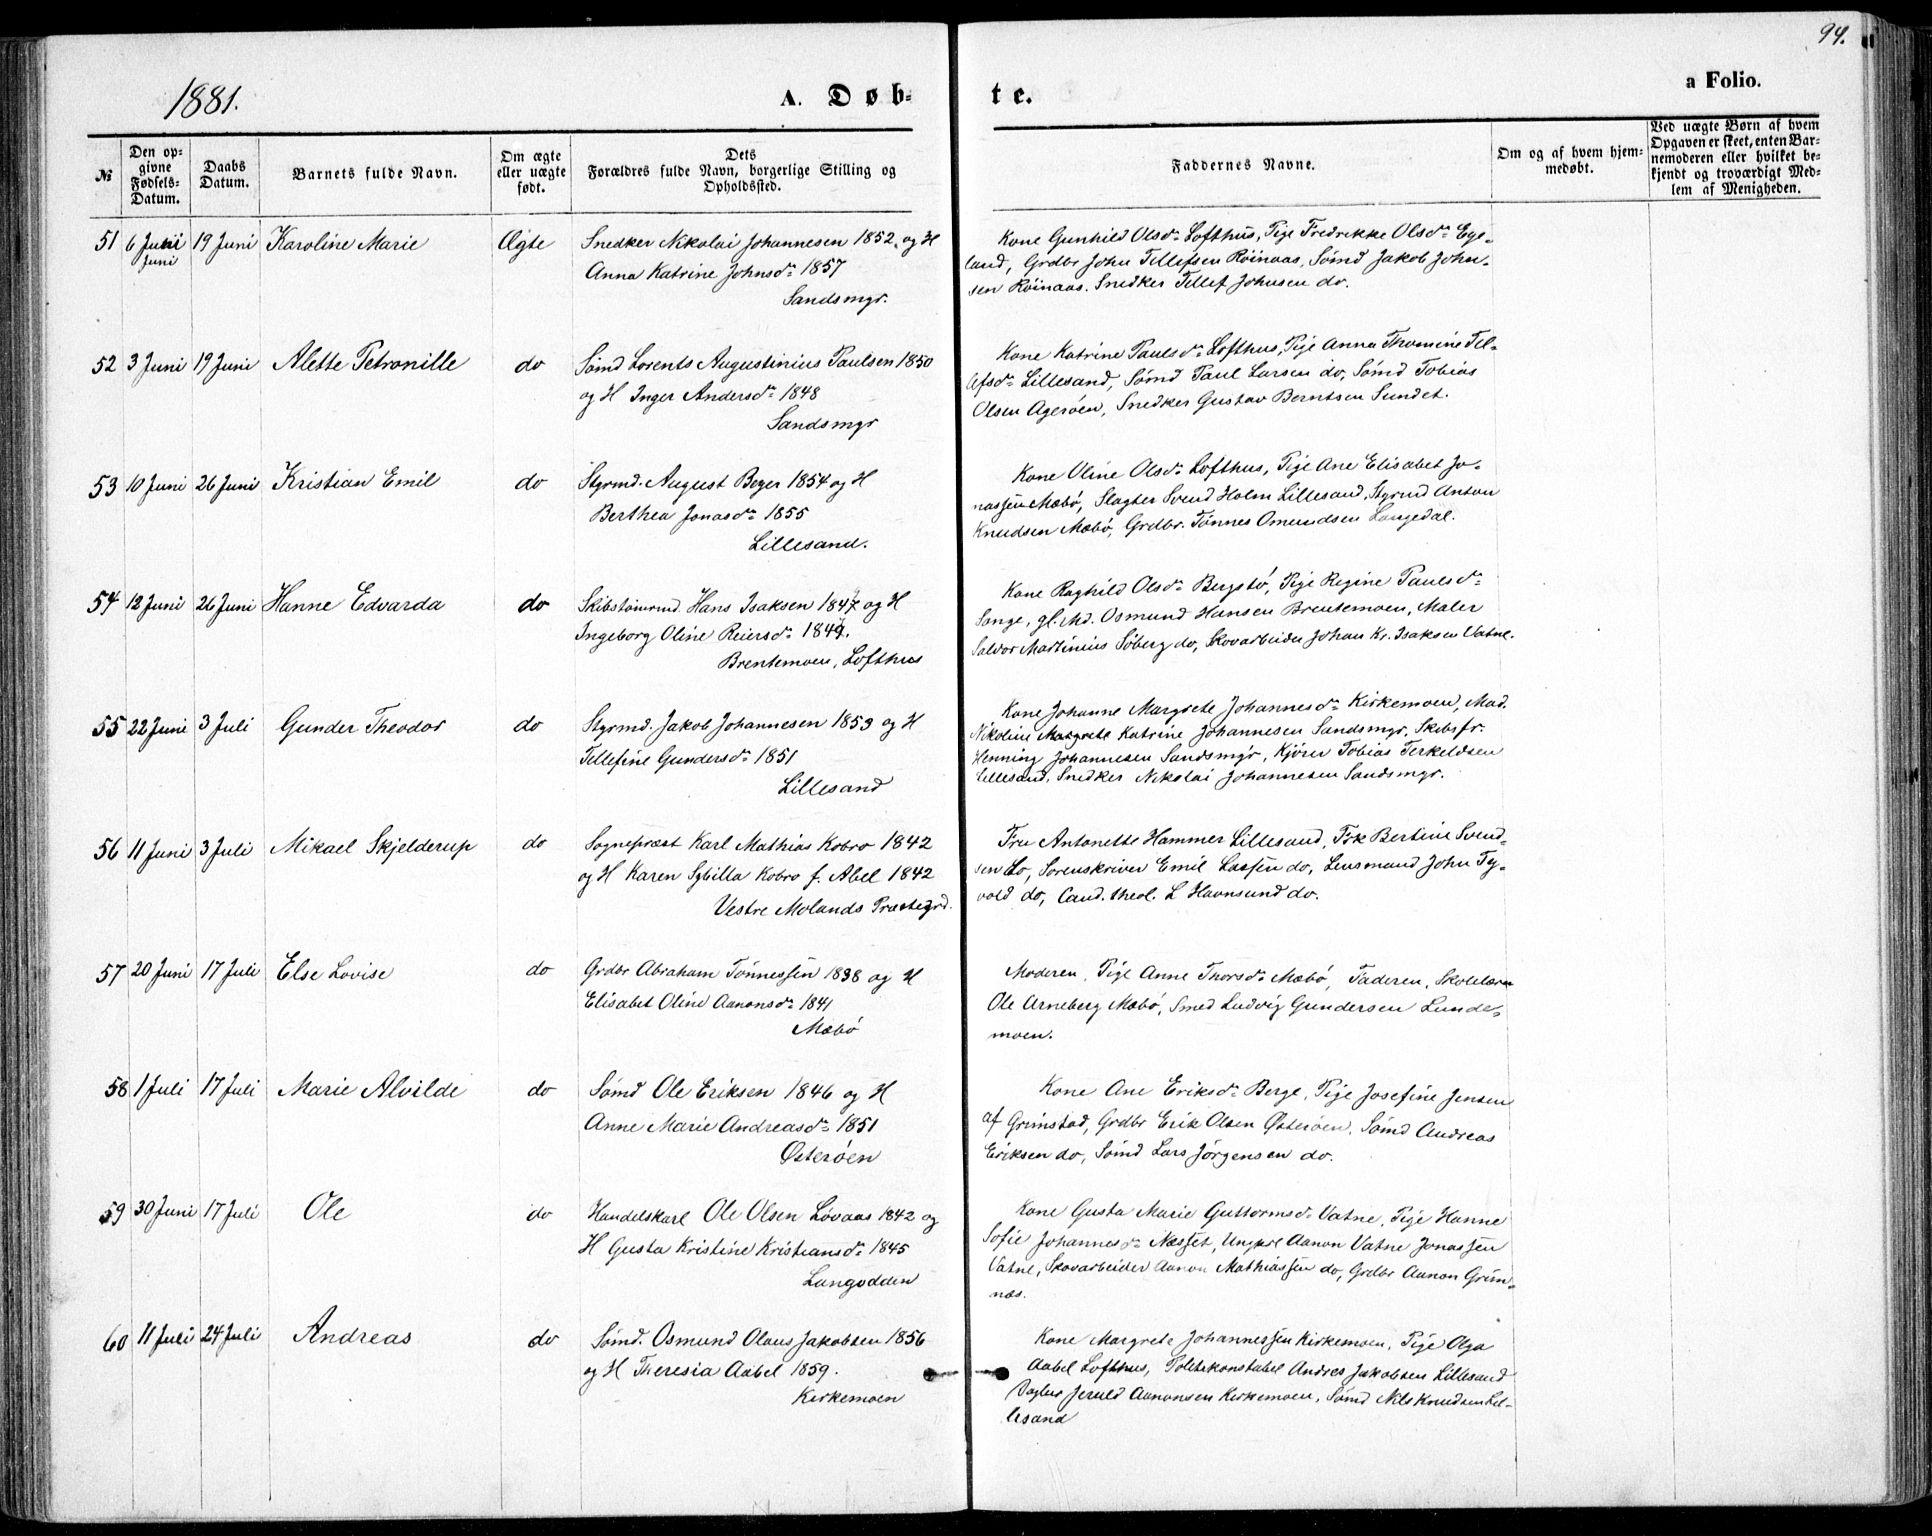 94.
1881.
A. Døb-
te.
a Folio.
№
Den op-
givne
Fødsels-
Datum.
Daabs
Datum.
Barnets fulde Navn.
Om ægte
eller uægte
født.
Dets
Forældres fulde Navn, borgerlige Stilling og
Opholdssted.
Faddernes Navne.
Om og af hvem hjem-
medøbt.
Ved uægte Børn af hvem
Opgaven er skeet, enten Bar-
nemoderen eller hvilket be-
kjendt og troværdigt Med-
lem af Menigheden.
51 6 Juni 19 Juni Karoline Marie Ægte Snedker Nikolai Johannesen 1852 og H
Juni
Anna Katrine Johnsdr 1857
Sandsmyr.
Kone Gunhild Olsdr Lofthus, Pige Fredrikke Olsdr Ege-
land, Grdbr John Tellefsen Röinaas, Sömd Jakob John-
sen Röinaas. Snedker Tellef Johnsen do.
52 3 Juni 19 Juni Alette Petronille do Sömd Lorents Augustinius Paulsen 1850
og H Inger Andersdr 1848
Sandsmyr
Kone Katrine Paulsdr Lofthus, Pige Anna Thomine Tel-
lefsdr Lillesand, Sömd Paul Larsen do, Sömd Tobias
Olsen Ageröen, Snedker Gustav Berntsen Sundet.
53 10 Juni 26 Juni Kristian Emil do Styrmd. August Beyer 1854 og H
Berthea Jonasdr 1855
Lillesand.
Kone Oline Olsdr Lofthus, Pige Ane Elisabet Jo-
nassen Mæbö, Slagter Svend Holm Lillesand, Styrmd Anton
Knudsen Mæbö, Grdbr. Tönnes Omundsen Langedal.
54 12 Juni 26 Juni Hanne Edvarda do Skibstömrmd. Hans Isaksen 1847 og H
Ingeborg Oline Reiersdr 1849.
Brentemoen, Lofthus
Kone Raghild Olsdr Bergstö, Pige Regine Paulsdr
Sange, gl. Md. Osmund Hansen Brentemoen, Maler
Salvor Martinius Söberg do, Skovarbeider Johan Kr. Isaksen Vatne.
55 22 Juni 3 Juli Gunder Theodor do Styrmd. Jakob Johannesen 1853 og H
Tellefine Gundersdr 1851
Lillesand
Kone Johanne Margrete Johannesdr Kirkemoen, Mad.
Nikoline Margrete Katrine Johannesen Sandsmyr. Skibsfr.
Henning Johannesen Sandsmyr, Kjörer Tobias Terkeldsen
Lillesand, Snedker Nikolai Johannesen Sandsmyr.
56 11 Juni 3 Juli Mikael Skjelderup do Sognepræst Karl Mathias Kobro 1842
og H Karen Sybilla Kobro f. Abel 1842
Vestre Molands Præstegrd.
Fru Antonette Hammer Lillesand, Frk Bertine Svend-
sen do, Sorenskriver Emil Lassen do, Lensmand John Ty-
vold do, Cand. theol. L Havnsund do.
57 20 Juni 17 Juli Else Lovise do Grdbr Abraham Tönnessen 1838 og H
Elisabet Oline Aanonsdr 1841
Mæbö
Moderen, Pige Anne Thorsdr Mæbö, Faderen, Skolelærer
Ole Arneberg Mæbö, Smed Ludvig Gundersen Lunde-
moen.
58 1 Juli 17 Juli Marie Alvilde do Sömd Ole Eriksen 1846 og H
Anne Marie Andreasdr 1851
Österöen
Kone Ane Eriksdr Berge, Pige Josefine Jensen
af Grimstad, Grdbr Erik Olsen Österöen, Sömd Andreas
Eriksen do, Sömd Lars Jörgensen do.
59 30 Juni 17 Juli Ole do Handelskarl Ole Olsen Lövaas 1842 og
H Gusta Kristine Kristiansdr 1845
Langodden
Kone Gusta Marie Guttormsdr Vatne, Pige Hanne
Sofie Johannesdr Næsset, Ungkrl Aanon Vatne Jonassen
Vatne, Skovarbeider Aanon Mathiassen do, Grdbr Aanon Grim-
næs.
60 11 Juli 24 Juli Andreas do Sömd. Osmund Olaus Jakobsen 1856
og H Theresia Aabel 1859.
Kirkemoen
Kone Margrete Johannessen Kirkemoen, Pige Olga
Aabel Lofthus, Politikonstabel Andres Jakobsen Lillesand
Jerull Aanonsen Kirkemoen, Sömd Nils Knudsen Lil-
lesand